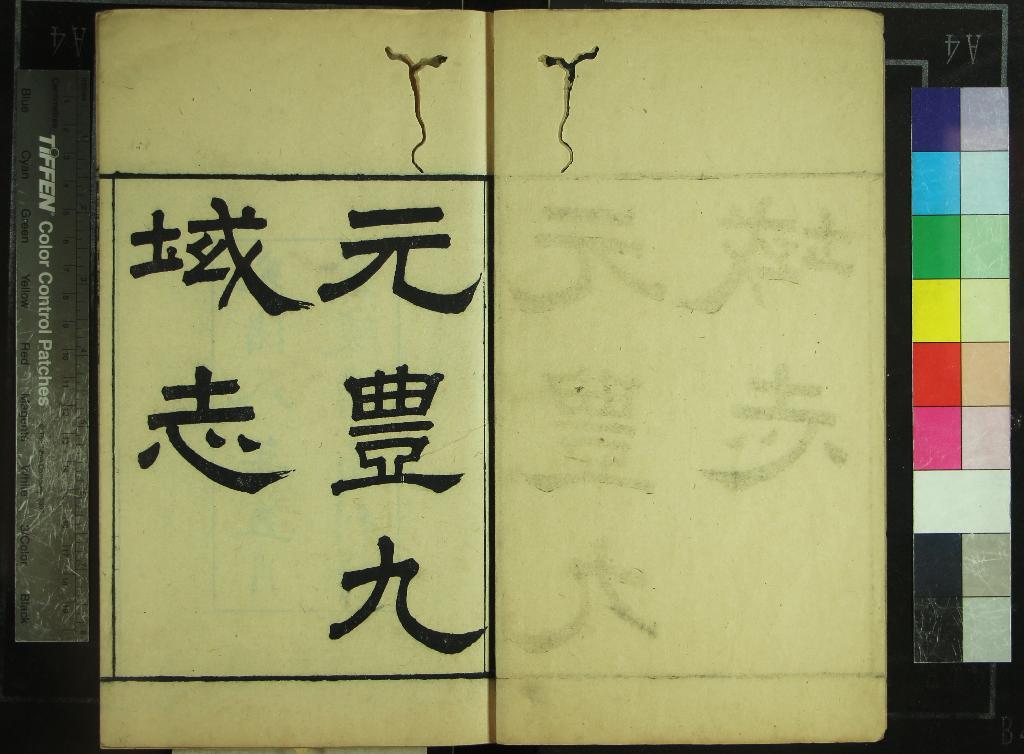 元豐九
域志
TIFFEN Color Control Patches
Blue Cyan Green Yellow Red Magenta White 3/Color Black
A4
A4
B